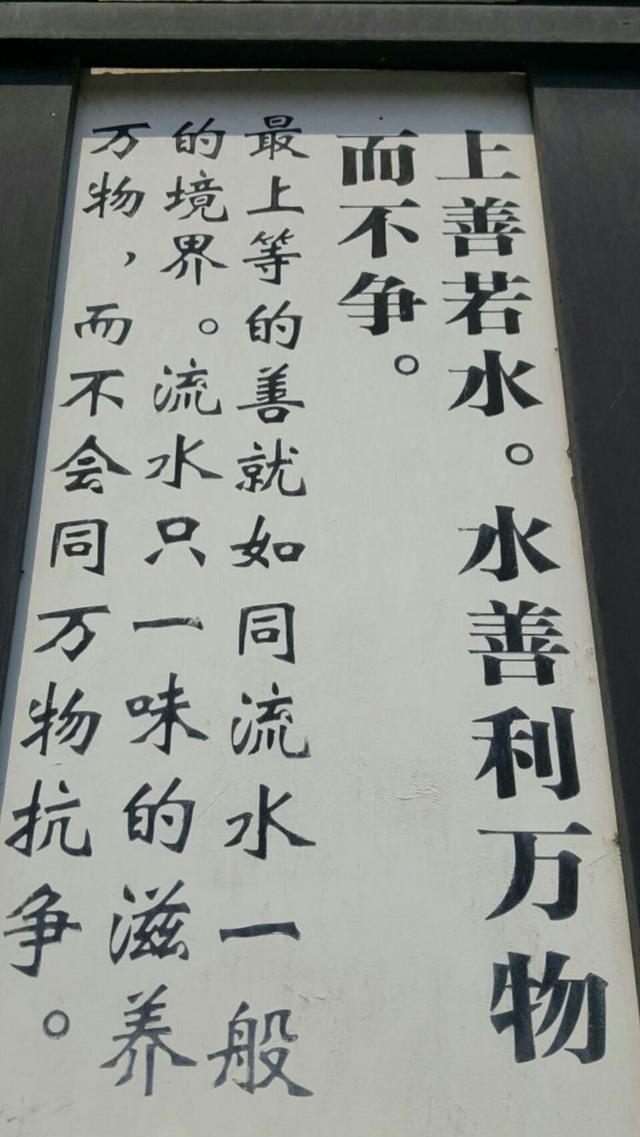 上善若水。水善利万物
而不争。
最上等的善就如同流水一般
的境界。流水只一味的滋养
万物，而不会同万物抗争。